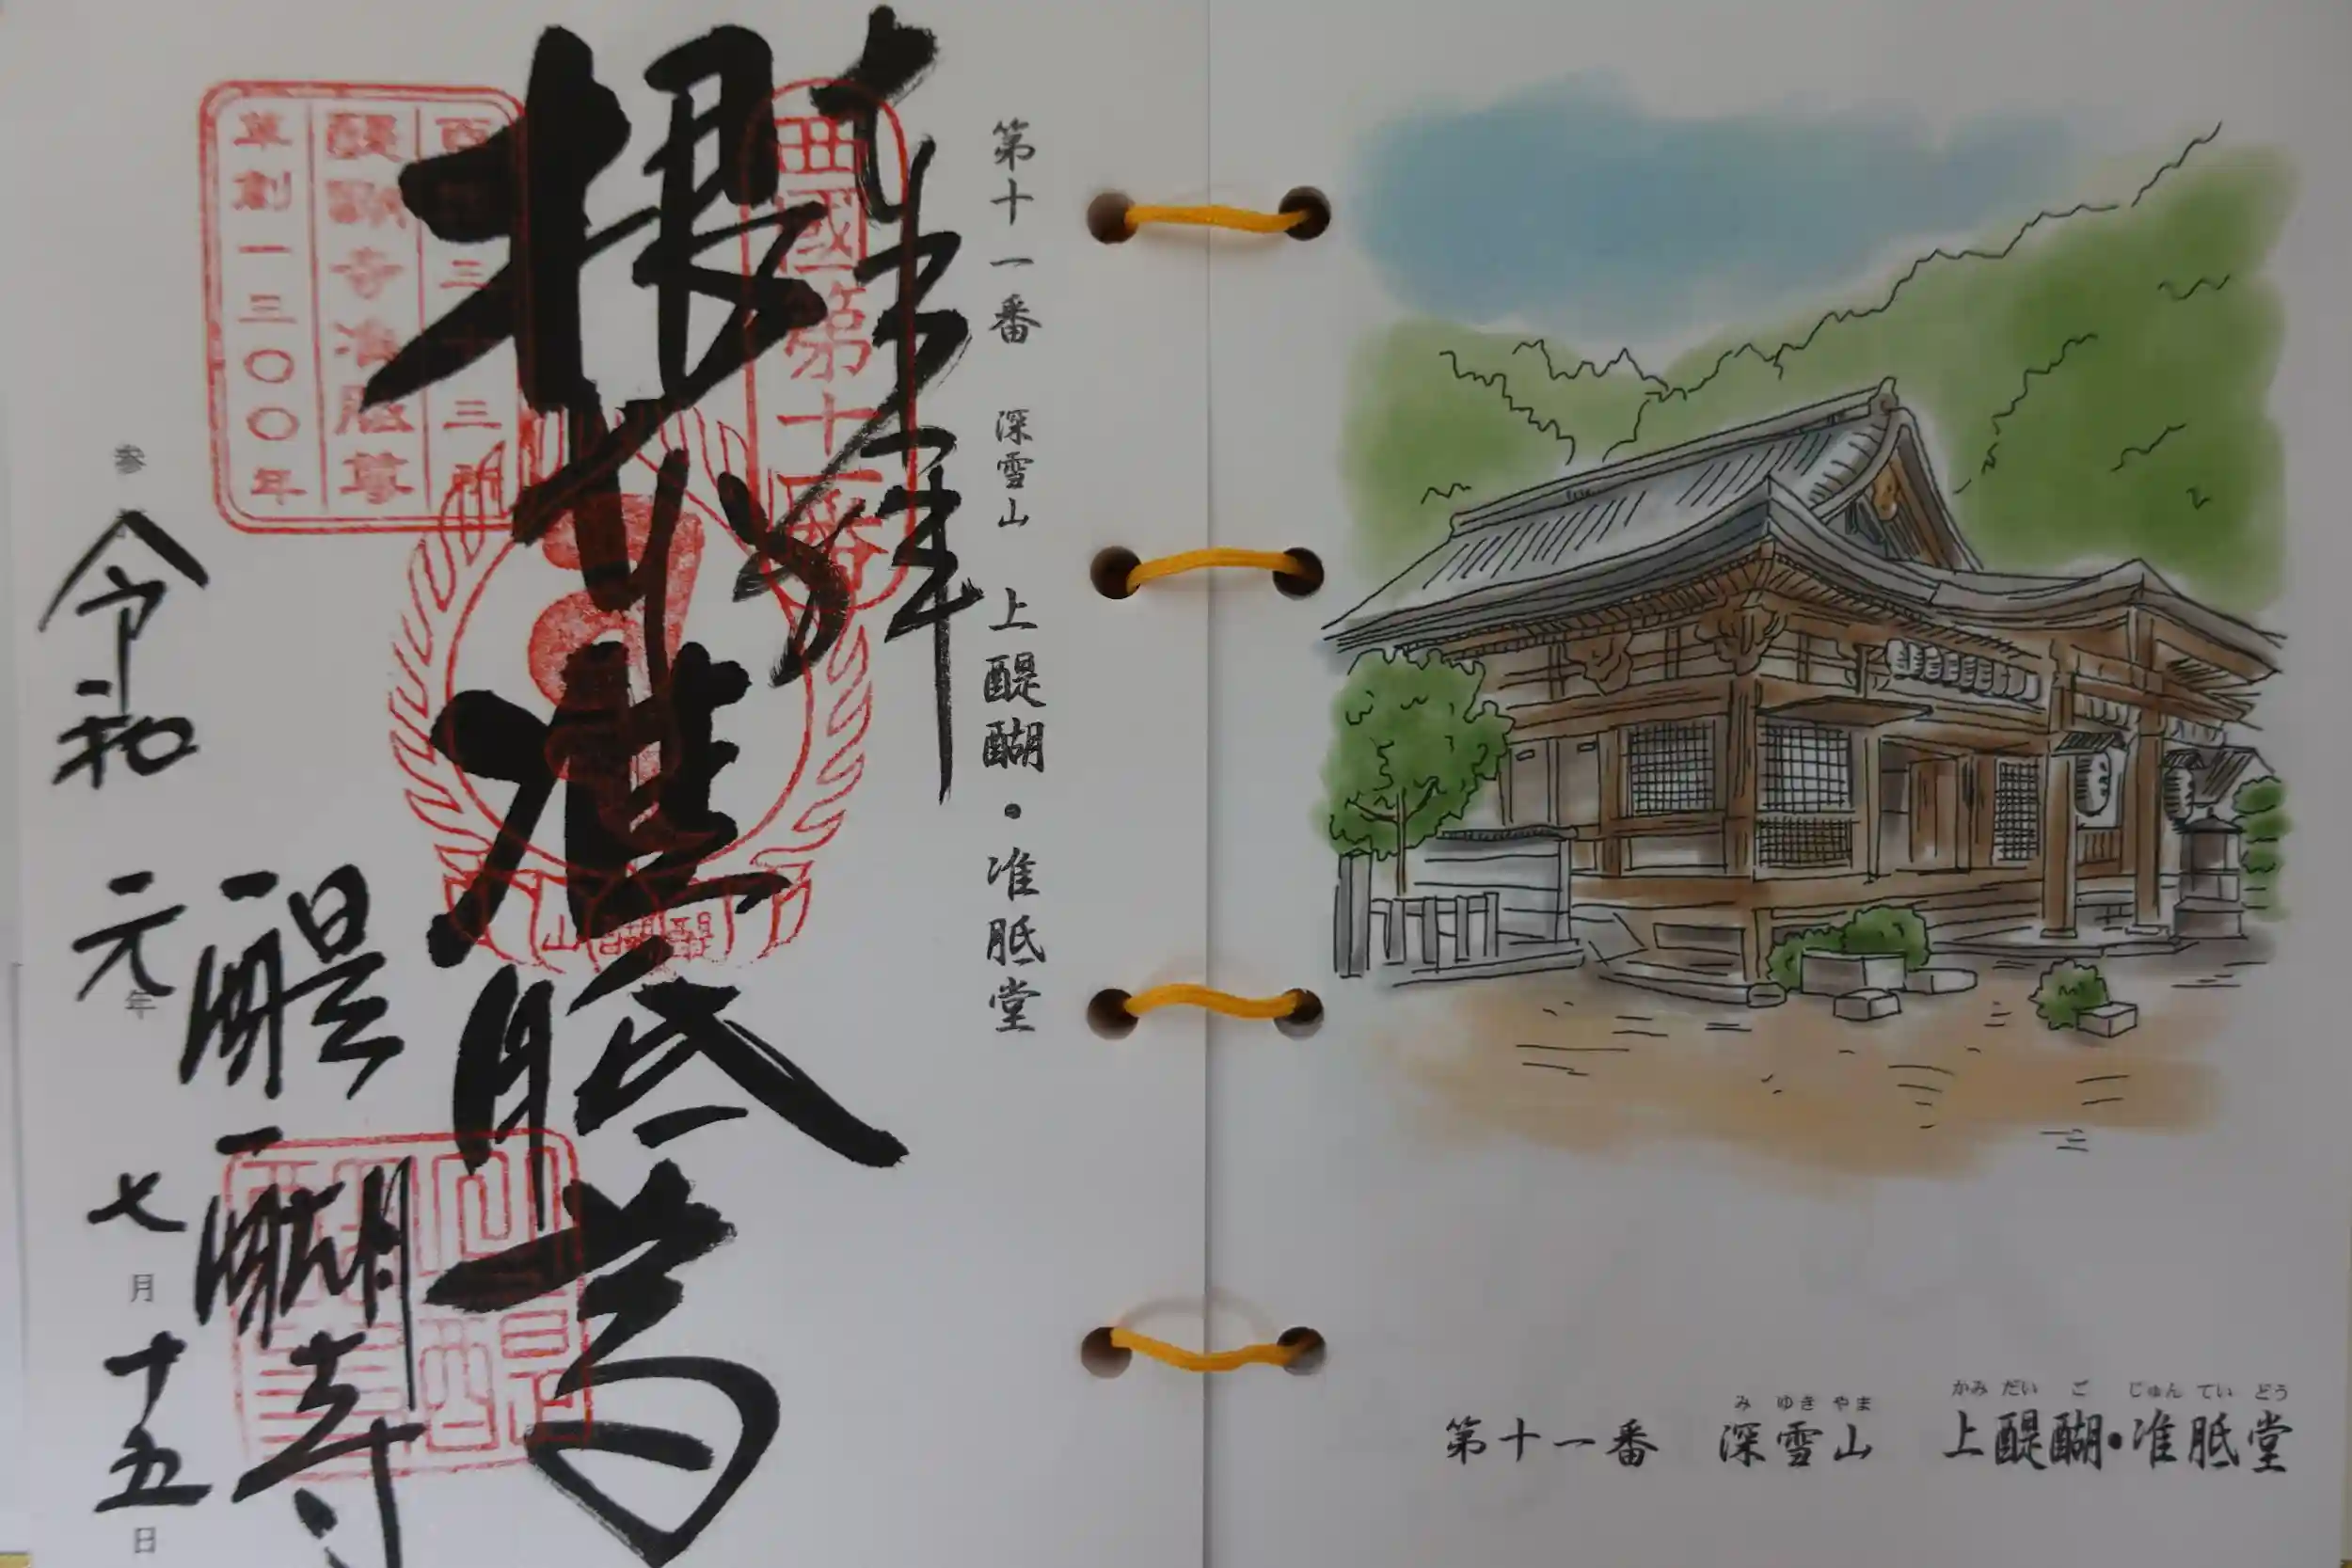 第十一番　深雪山　上醍醐・准胝堂
奉拝
西國第十一番
根本准胝尊
西国三十三所
醍醐寺准胝尊
草創一三〇〇年
醍醐山
醍醐寺
参
令和元年七月十五日
み ゆき やま　かみ だい ご じゅん てい どう
第十一番　深雪山　上醍醐・准胝堂